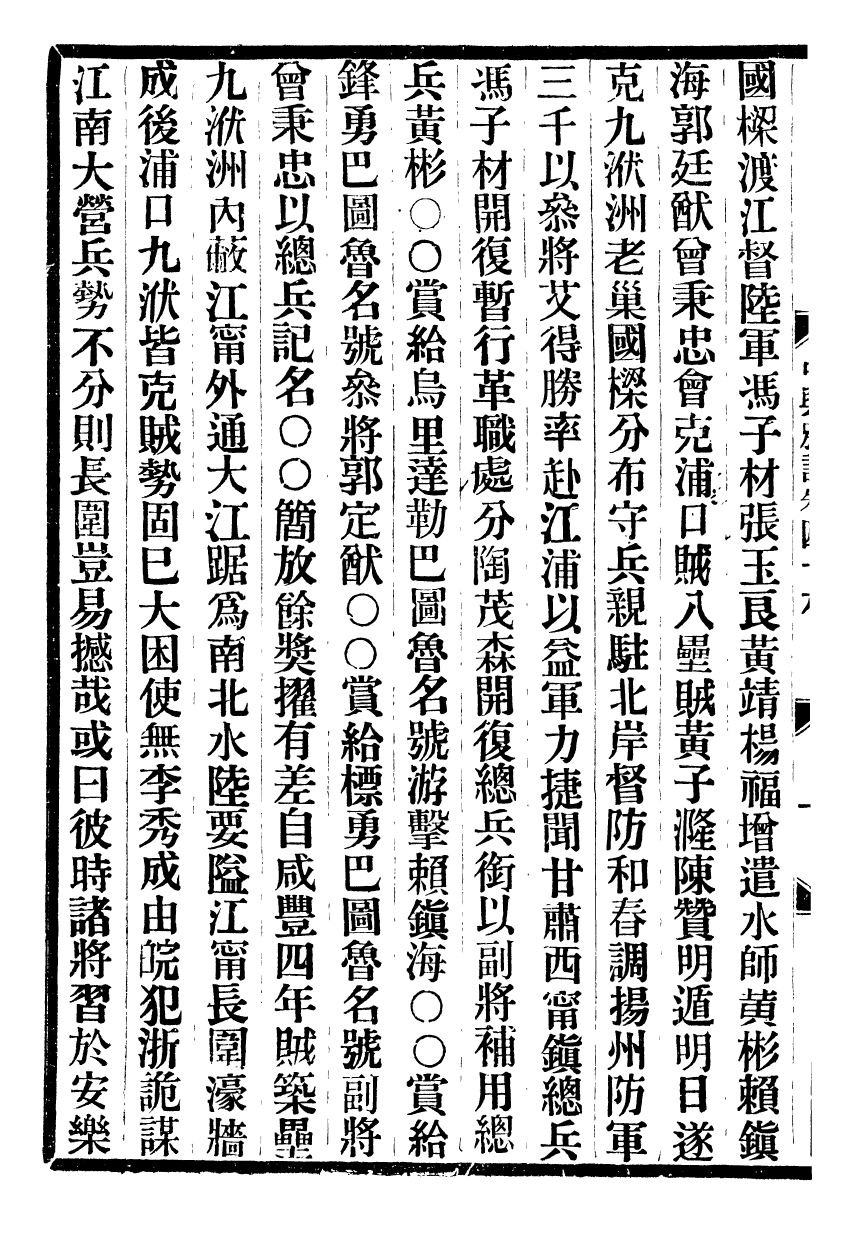 國樑渡江督陸軍馮子材張玉良黃靖楊福增遣水師黄彬賴鎭
海郭廷猷曾秉忠會克浦口賊八壘賊黃子漋陳贊明遁明日遂
克九洑洲老巢國樑分布守兵親駐北岸督防和春調揚州防軍
三千以叅將艾得勝率赴江浦以益軍力捷聞甘肅西甯鎭總兵
馮子材開復暫行革職處分陶茂森開復總兵銜以副將補用總
兵黃彬○○賞給烏里達勒巴圖魯名號游擊賴鎭海○○賞給
鋒勇巴圖魯名號叅將郭定猷○○賞給標勇巴圖魯名號副將
曾秉忠以總兵記名○○簡放餘獎擢有差自咸豐四年賊築壘
九洑洲內蔽江甯外通大江踞爲南北水陸要隘江甯長圍濠牆
成後浦口九洑皆克賊勢固巳大困使無李秀成由皖犯浙詭謀
江南大營兵勢不分則長圍豈易撼哉或曰彼時諸將習於安樂